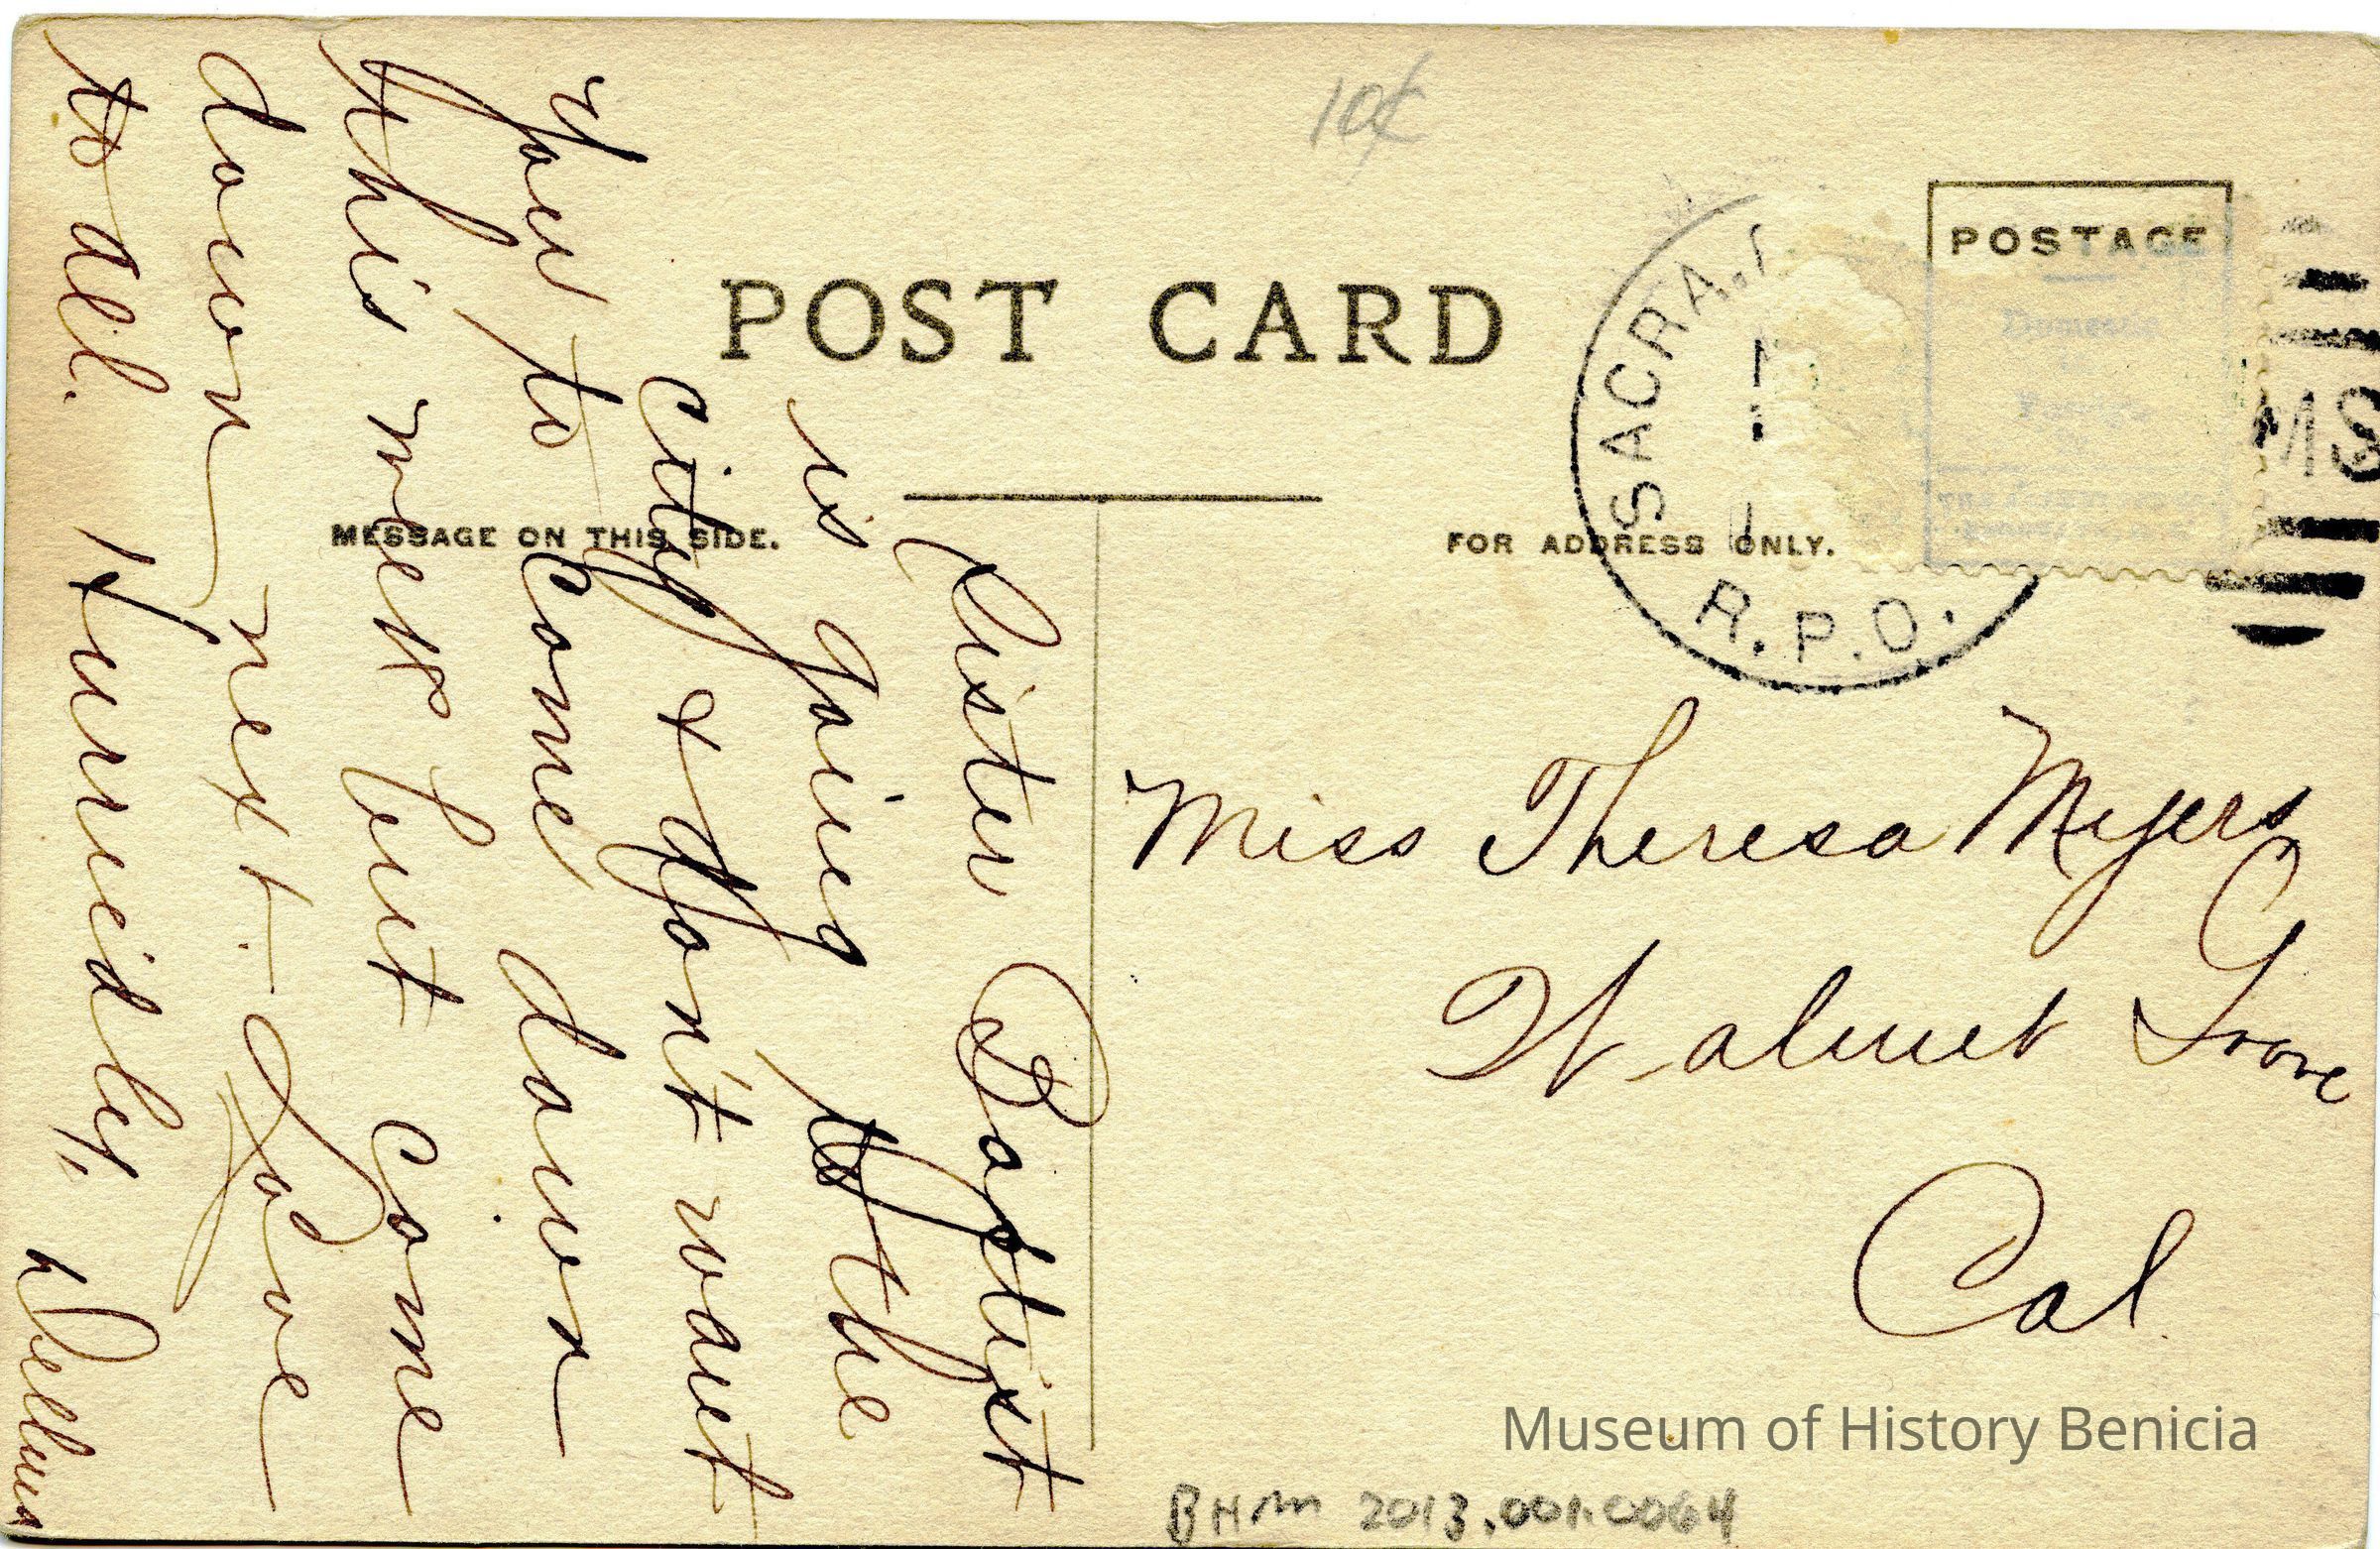 10¢
POST CARD
POSTAGE
SACRA.
R.P.O.
MESSAGE ON THIS SIDE.
FOR ADDRESS ONLY.
Sister Baptist
is going to the
city & don't want
you to come down
this mess but come
down next. Love
to all. Hurriedly,
Miss Theresa Myers
Walnut Grove
Cal
Museum of History Benicia
BHM 2013.001.0064